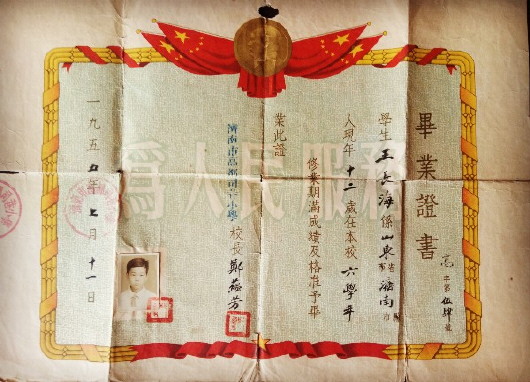 畢業證書
高字第伍肆號
學生王長海係山東省濟南市
人現年十二歲在本校六學年
修業期滿成績及格准予畢
業此證
濟南市高都司巷小學 校長 鄭 芳
一九五 年七月十一日
為人民服務